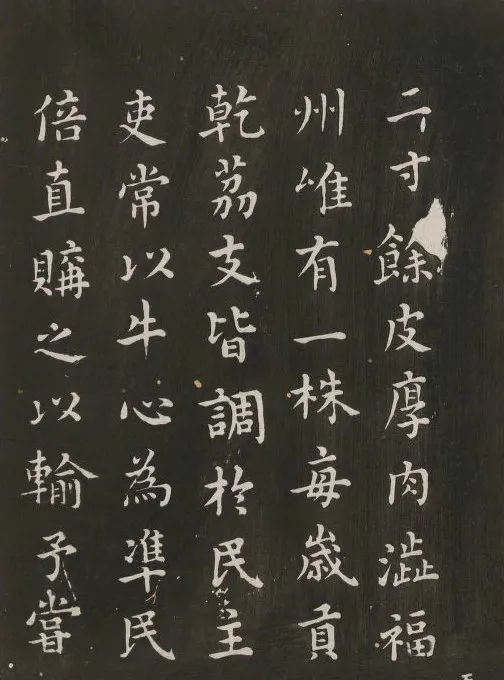 二寸餘皮厚肉澁福
州唯有一株每歲貢
乾荔支皆調於民主
吏常以牛心為準民
倍直購之以輸予嘗